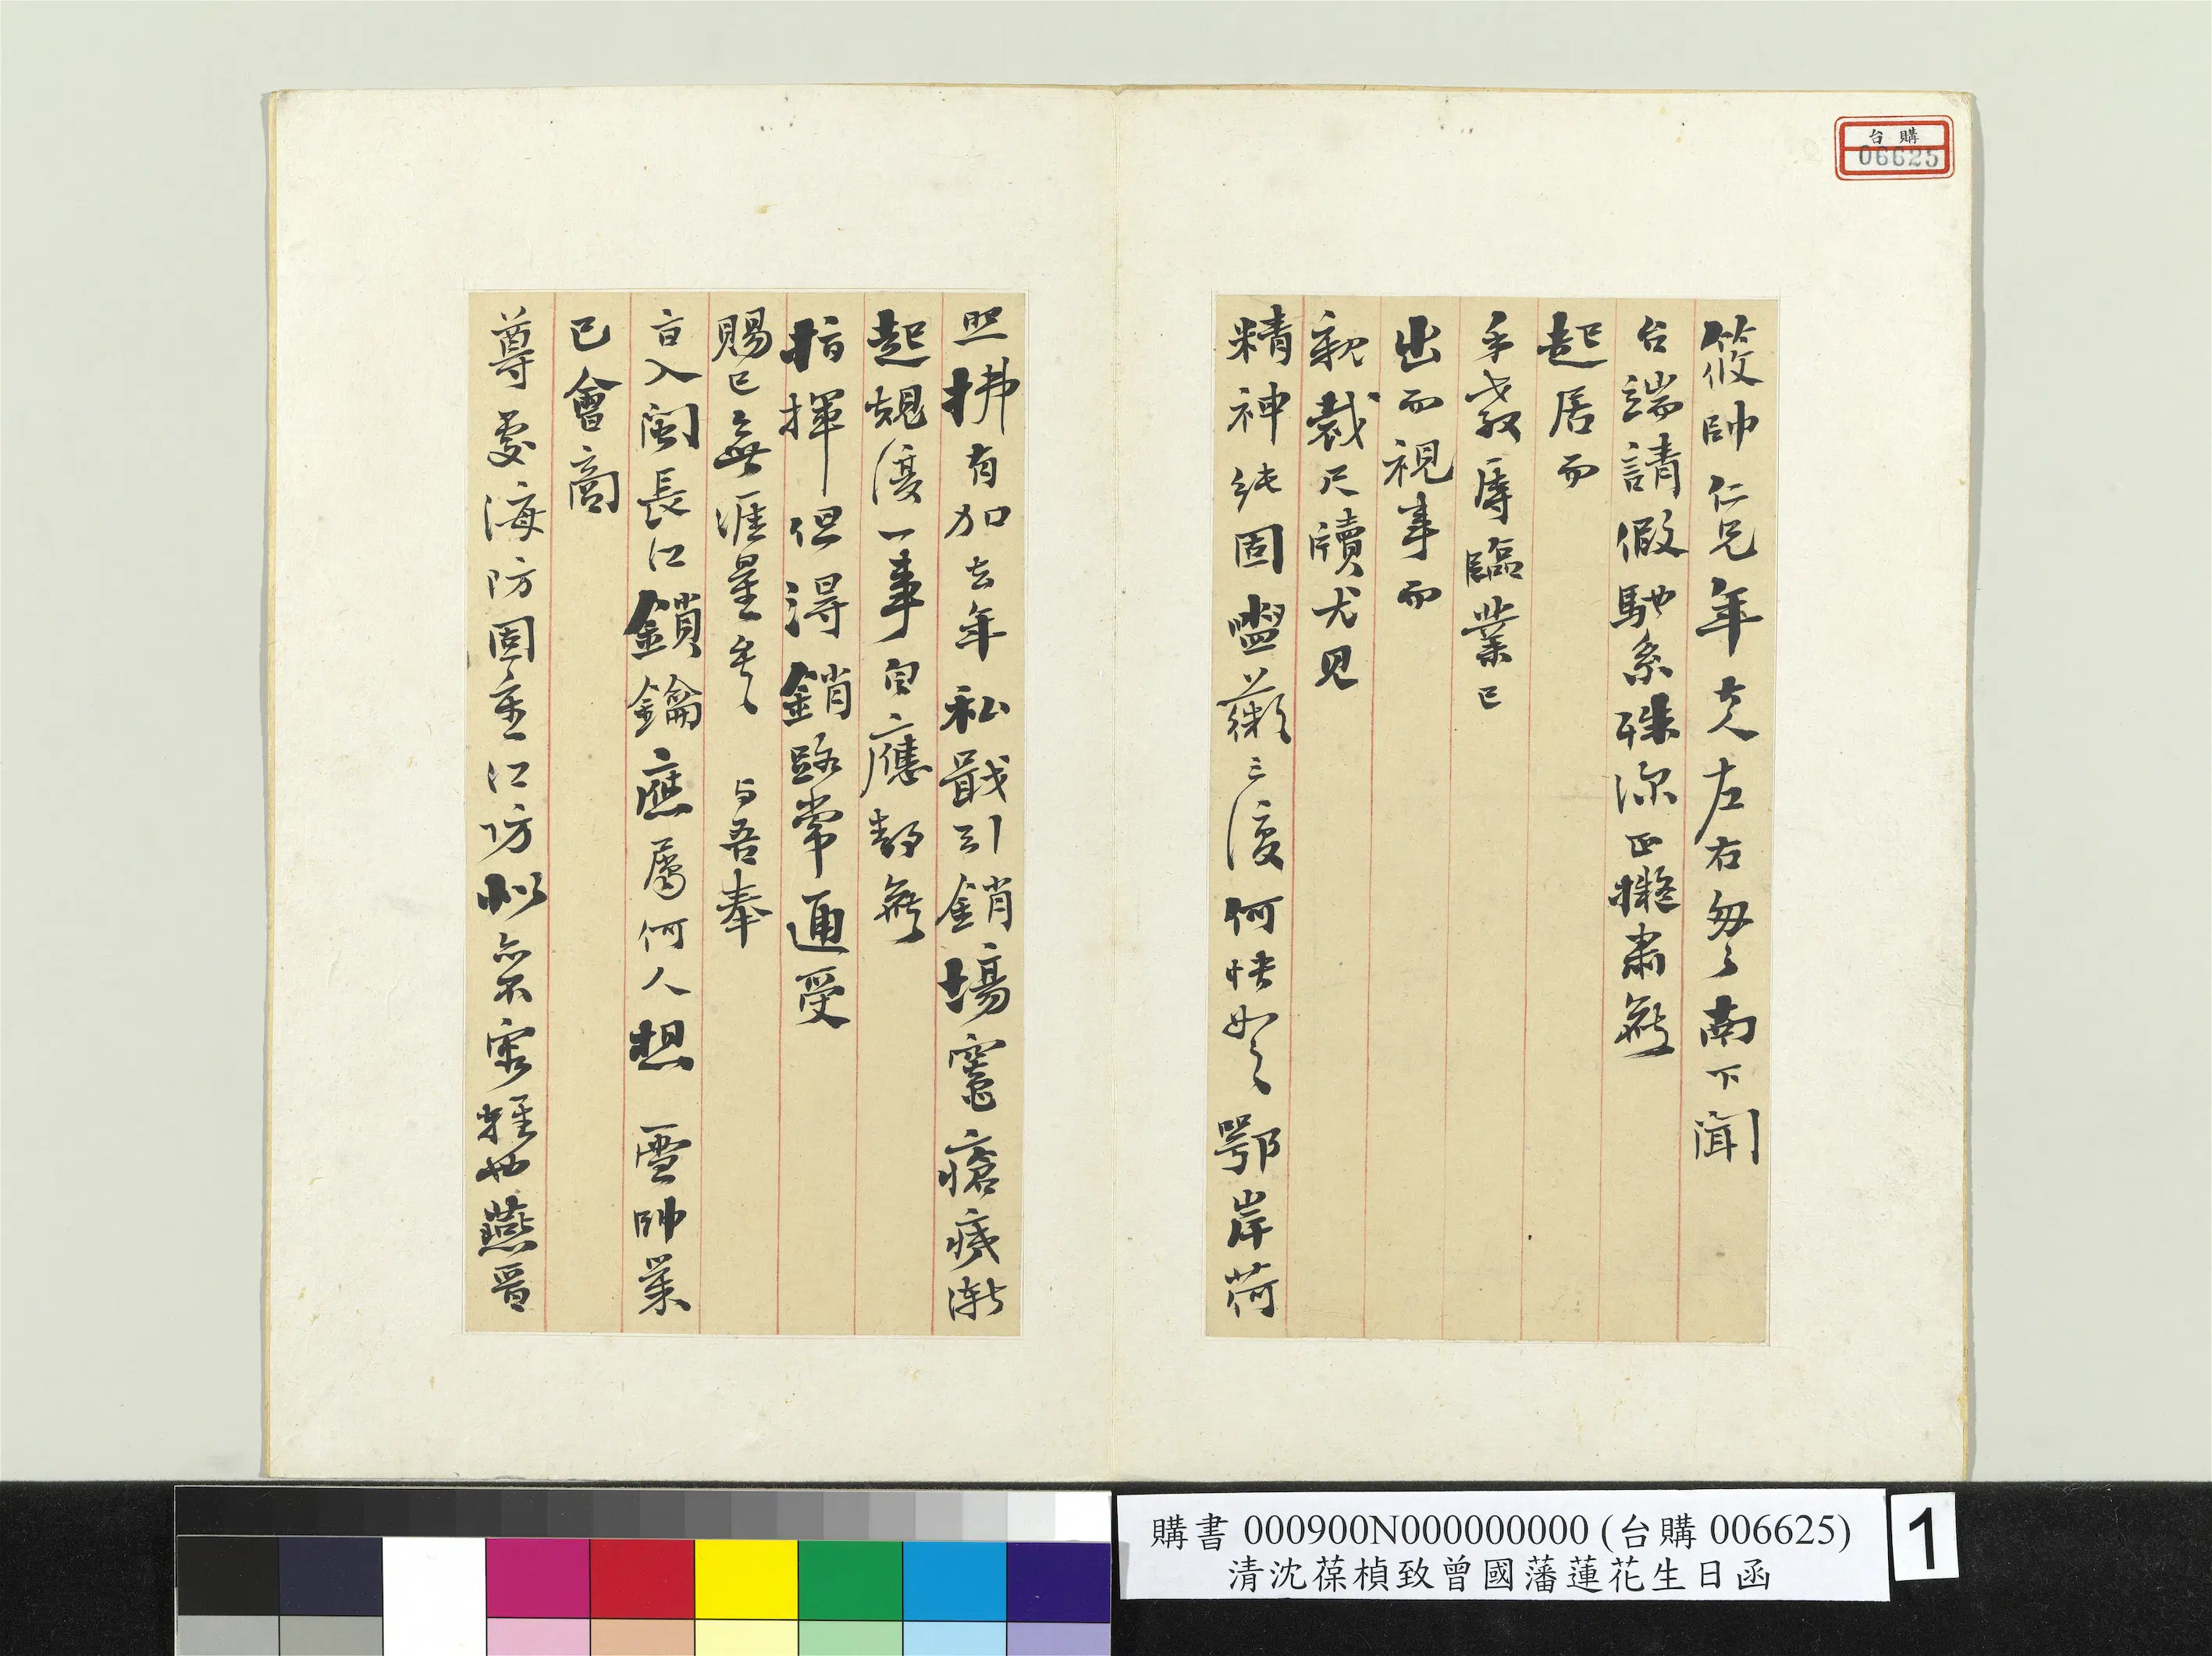 台購
06625
筱帥仁兄年大人左右匆匆南下聞
台端請假馳系殊深正擬肅
起居而
手教辱臨業已
出而視事而
親裁尺牘尤見
精神純固盥薇三復何快如之鄂岸荷
照拂有加去年私戤引銷場竈瘡痍漸
起規復一事自應靜
指揮但得銷路常通受
賜已無涯量矣 与吾奉
旨入閩長江鎖鑰應屬何人想 雪帥業
已會商
尊處海防固重江防似亦不容輕也燕晋
購書 000900N000000000 (台購 006625)
清沈葆楨致曾國藩蓮花生日函
1